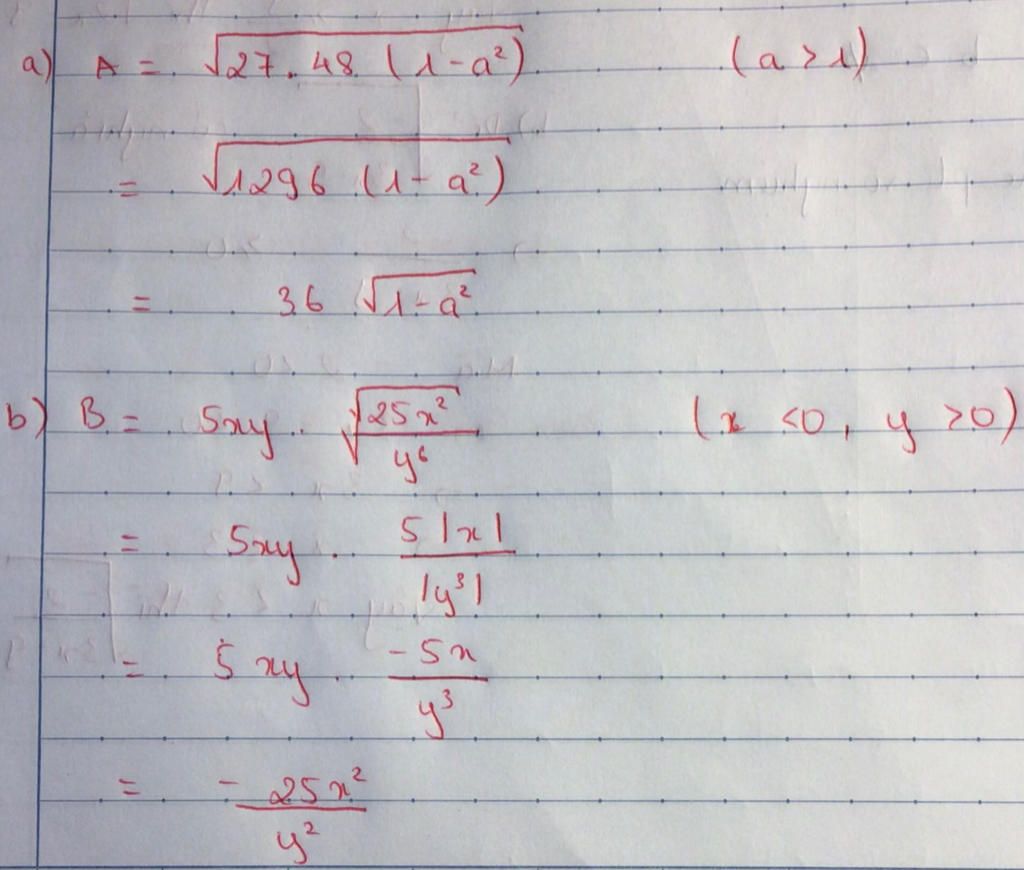 a) A = √27.48 (1-a²) (a > 1)
= √1296 (1-a²)
= 36 √1-a²
b) B = 5xy . √25x²/y⁶ (x < 0, y > 0)
= 5xy . 5|x|/|y³|
= 5xy . -5x/y³
= -25x²/y²